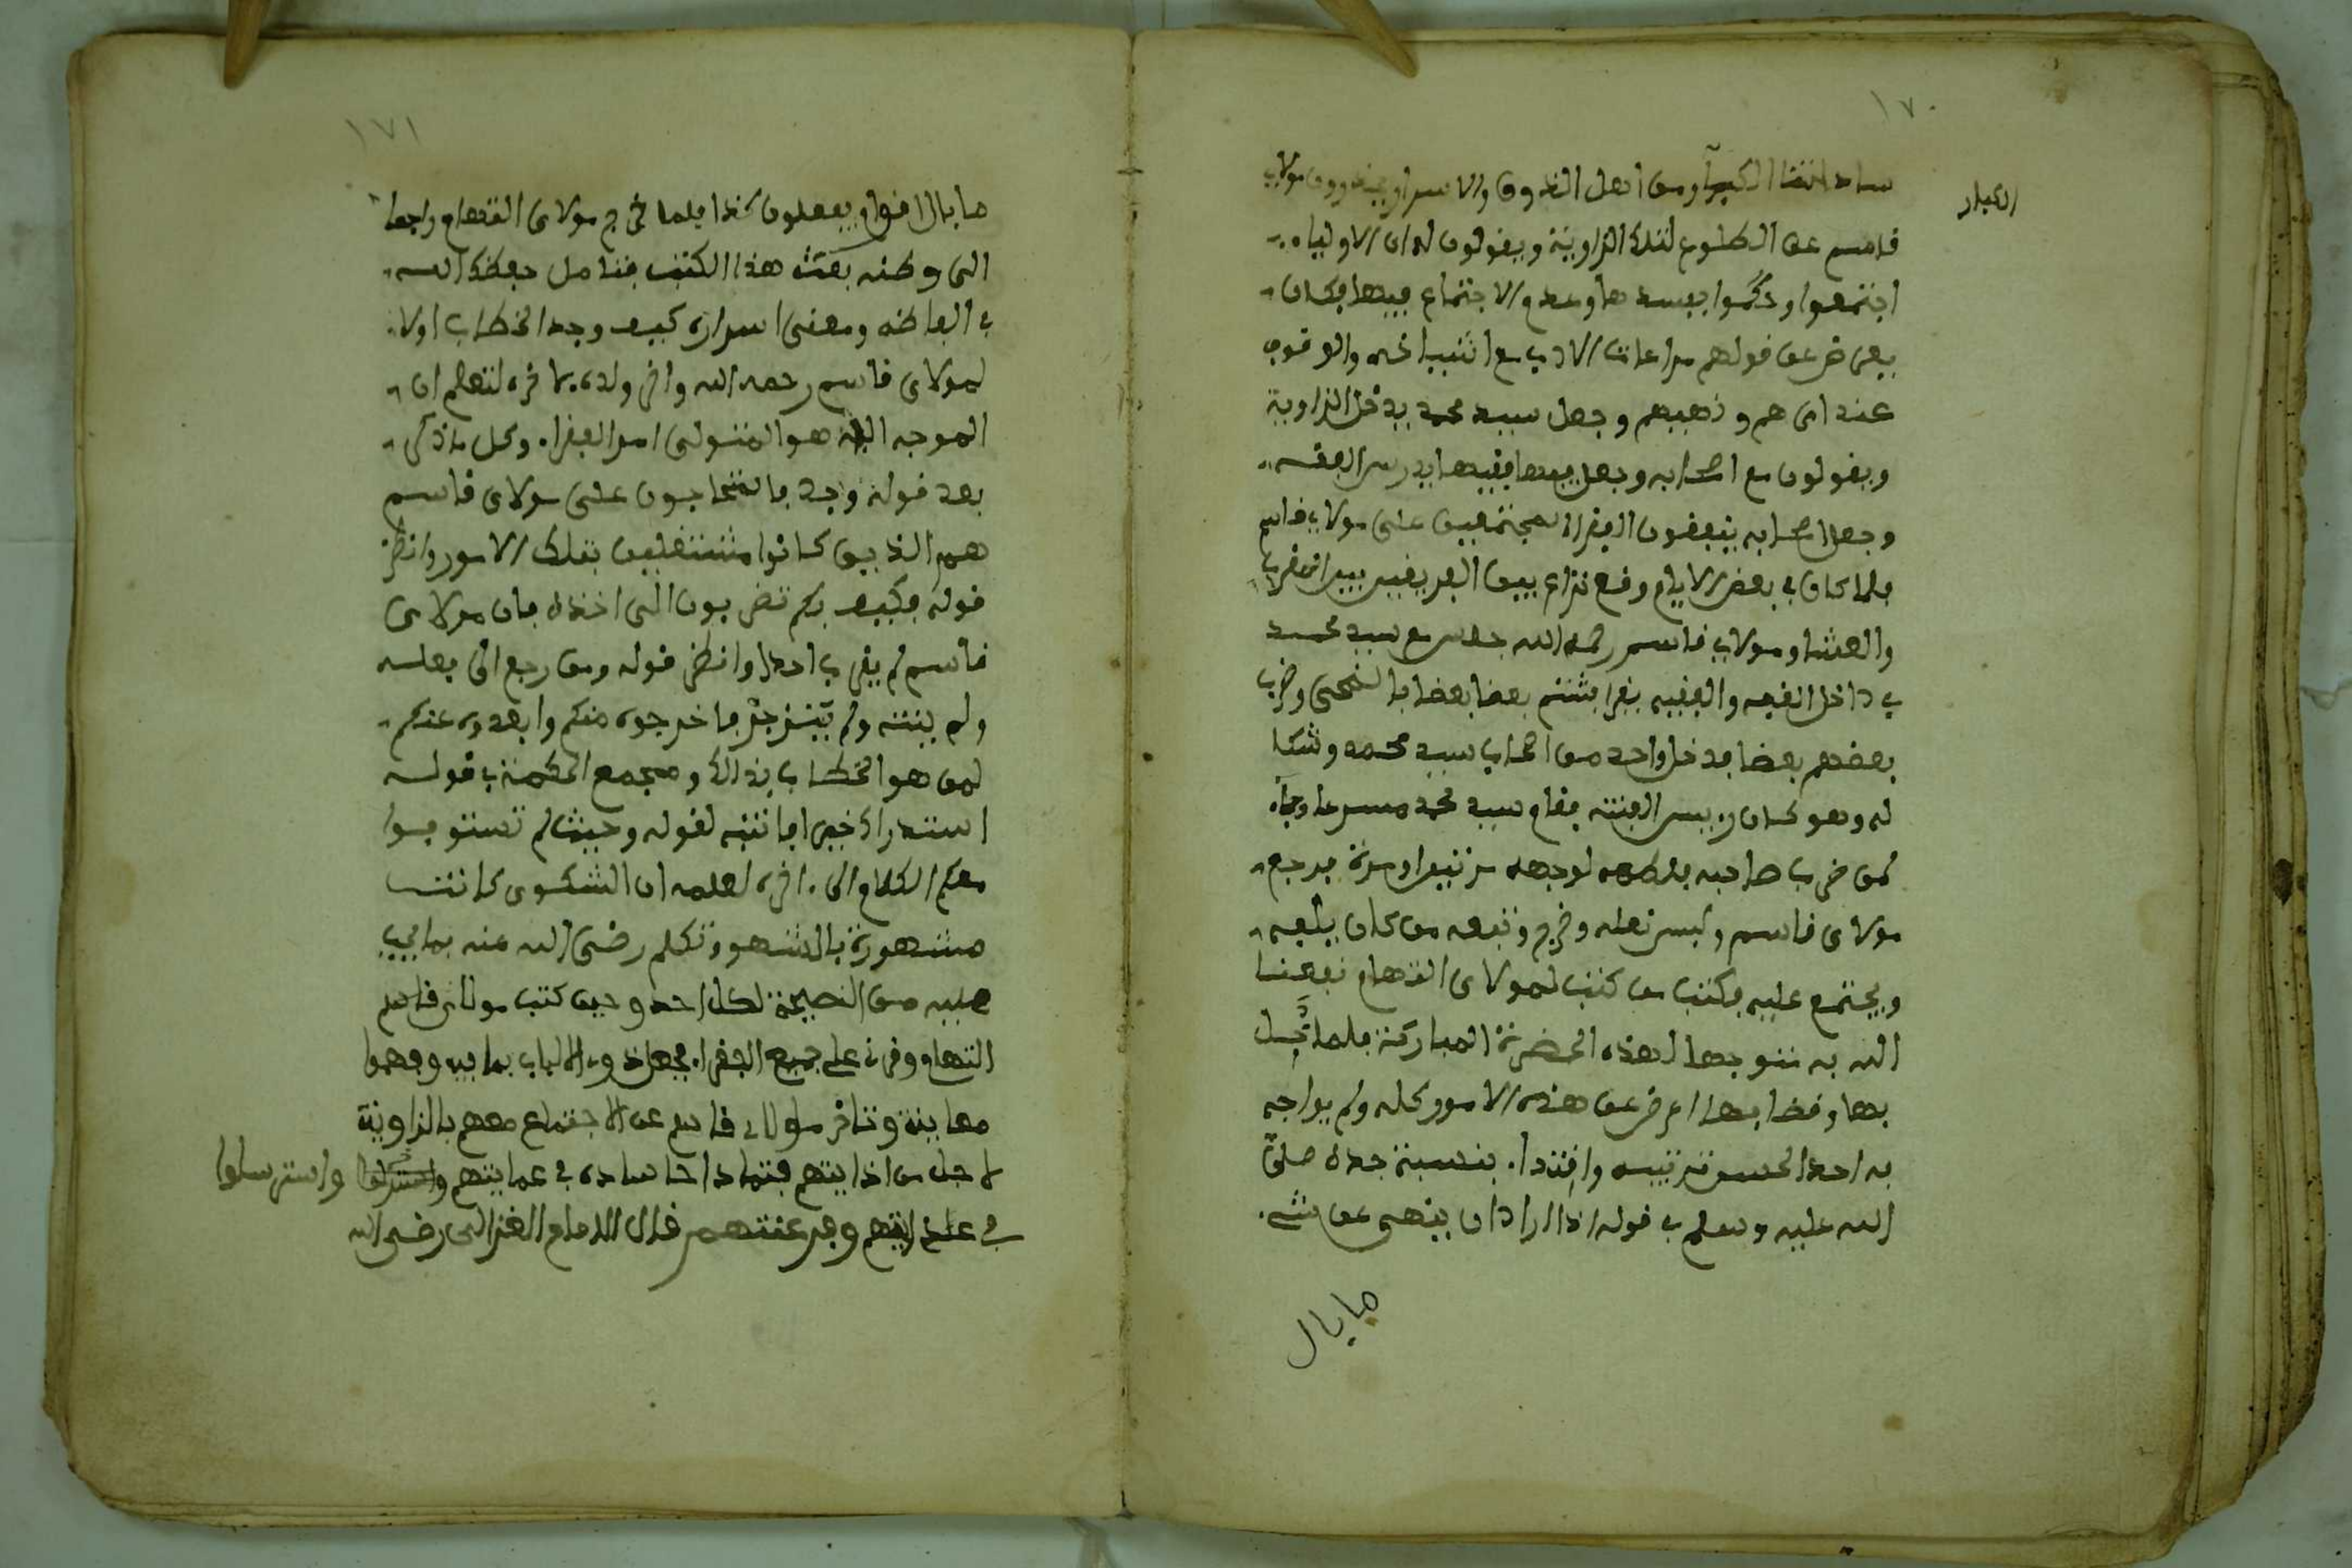 ١٧٠
ساداتنا الكبرآ ومن أهل الذوق والاسرار ويحذرون مولاي
الكبار
قاسم عن الطلوع لتلك الزاوية ويقولون له ان الاولياء
اجتمعوا وحكموا بعسدها وعدم الاجتماع فيها فكان
يعرض عن قولهم مراعات الادب مع اشياخه والوقوف
عند امرهم ونهيهم وجعل سيد محمد يدخل الزاوية
ويقولون مع اصحابه وجعل فيها فقيها يدرس الفقه
وجعل اصحابه ينقصون الفقراء المجتمعين على مولاي قاسم
فلما كان في بعض الايام وقع نزاع بين الفريقين بين المغرب
والعشا ومولاي قاسم رحمه الله جالس مع سيد محمد
في داخل القبة والفقيه يقرا فشتم بعضا بعضا بالفحش وضرب
بعضهم بعضا فدخل واحد من اصحاب سيد محمد وشكا
له وهو كان رييس الفتنه فقام سيد محمد مسرعا وجاء
لمن ضرب صاحبه فلطمه لوجهه مرتين او مرة فرجع
مولاي قاسم ولبس نعله وخرج وتبعه من كان يتبعه
ويجتمع عليه فكتب من كتب لمولاي التهام نفعنا
الله به متوجها لهذه الحضرة المباركة فلما نزل
بها وقضا بها اعرض عن هذه الامور كلها ولم يواجه
به احدا لحسن تربيته واقتداء بنسبة جده صلى
الله عليه وسلم في قوله اذا اراد ان ينهى عن شيء
ما بال
١٧١
ما بال اقوام يفعلون كذا فلما خرج مولاي التهام راجعا
الى وطنه بعث هذا الكتب فتامل حفظك الله
في الفاظه ومعنى اسراره كيف وجه الخطاب اولا
لمولاي قاسم رحمه الله واخر ولده لتعلم ان
الموجه اليه هو المتولى امر الفقراء وكل ماذكر
بعد قوله وجد ما تتحاجون على مولاي قاسم
هم الذين كانوا مشتغلين بتلك الامور وانظر
قوله فكيف بكم تضربون الى اخره فان مولاي
قاسم لم يضرب احدا وانظر قوله ومن رجع الى فعله
ولم ينته ولم ينزجر فاخرجوه منكم وابعدوه عنكم
لمن هو الخطاب بذلك ومجمع الحكمة في قوله
استدراك خير انتبه لقوله وحيث لم تستوفوا
معكم الكلام الى اخره لعلمه ان الشكوى كانت
مشهورة بالشهود تكلم رضي الله عنه بما يجب
عليه من النصيحة لكل احد وحين كتب مولاي قاسم
التهام وقرئ على جميع الفقراء فجعل ذووا الالباب بما فيه وفهموا
معاينه وتاخر مولاي قاسم عن الاجتماع معهم بالزاوية
لاجل من اذايتهم فتمادا اسياده في عمايتهم واسترسلوا
في على اذايتهم وفرعنتهم قال الامام الغزالى رضي الله